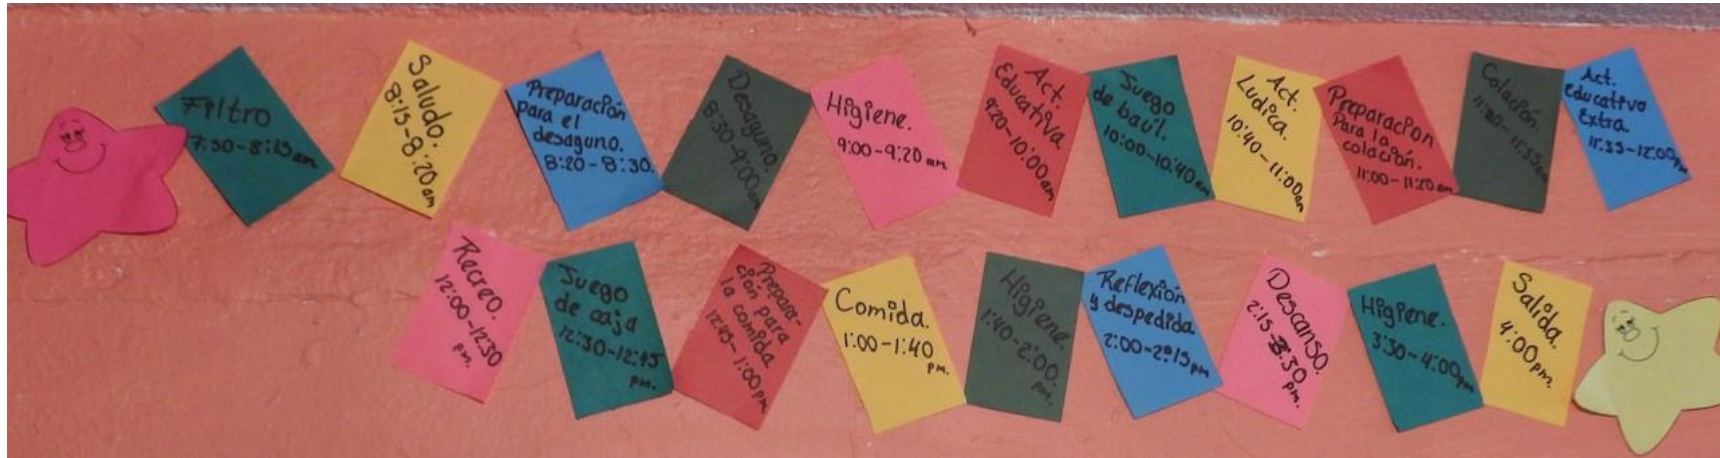 Filtro
7:30-8:15 am
Saludo.
8:15-8:20 am
Preparación
para el
desaguno.
8:20-8:30.
Desaguno.
8:30-9:00 am
Higiene.
9:00-9:20 am
Act.
Educativa
9:20-10:00 am
Juego
de baúl.
10:00-10:40 am
Act.
Ludica.
10:40-11:00 am
Preparacion
Para la
colación.
11:00-11:20 am
Colación.
Act.
educativa
Extra
11:35-12:00 pm
Recreo.
12:00-12:30
pm.
Juego
de caja
12:30-12:45
pm.
Prepara-
ción para
la comida
12:45-1:00 pm
Comida.
1:00-1:40
pm.
Higiene.
1:40-2:00.
pm.
Reflexión
y despedida
2:00-2:15 pm
Descanso.
2:15-3:30
pm.
Higiene.
3:30-4:00 pm
Salida.
4:00 pm.